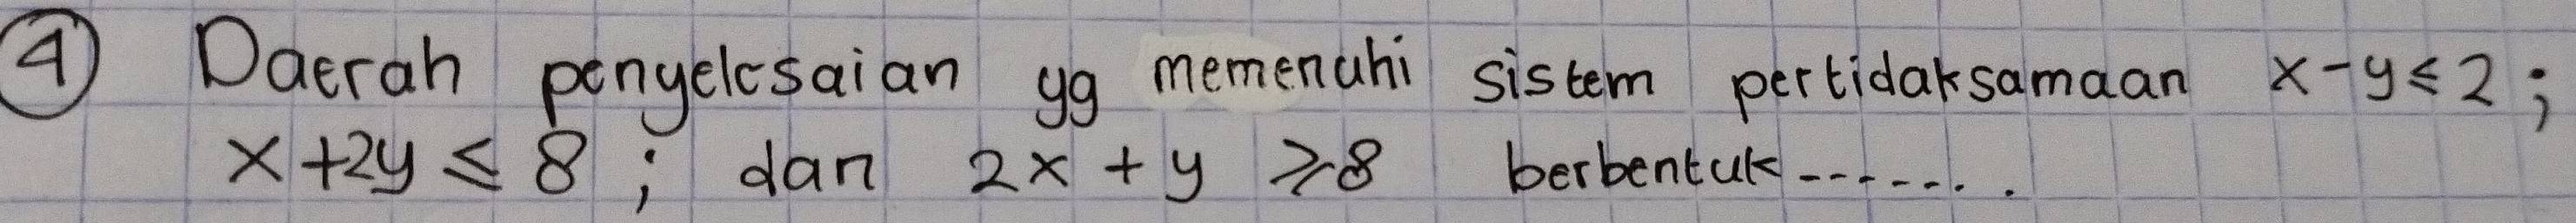 ④ Daerah penyelesaian yg memenuhi sistem pertidaksamaan x-y≤2;
x+2y ≤ 8 ; dan 2x + y ≥ 8 berbentuk.......